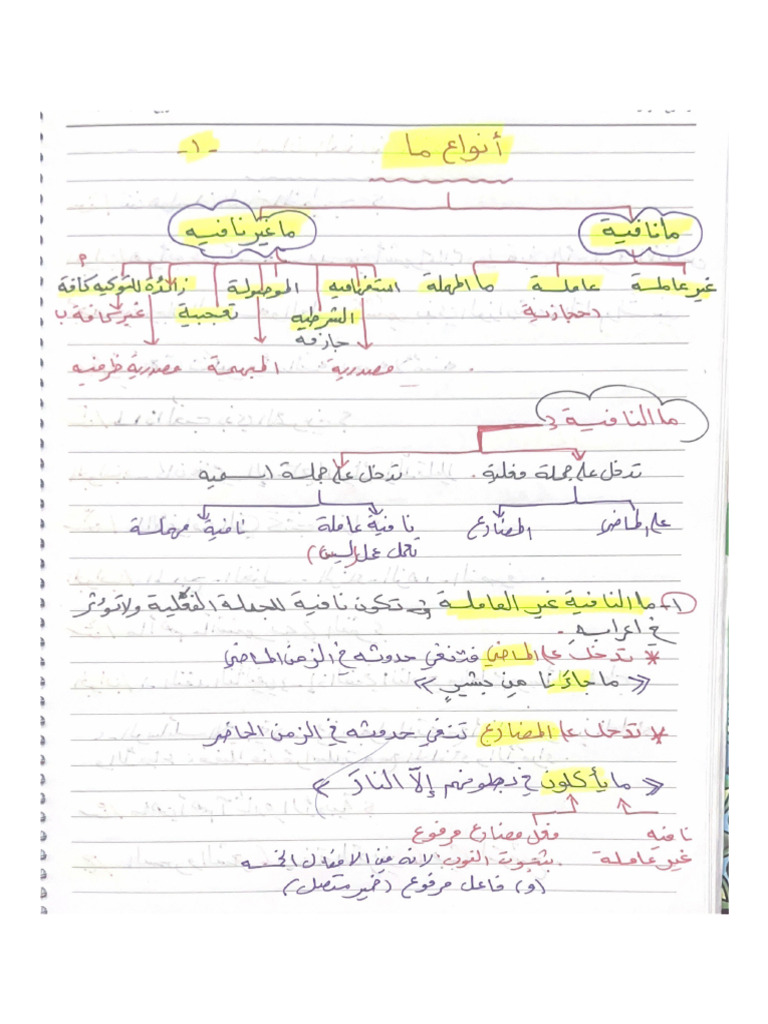 أنواع ما
-١-
ما نافية
ما غير نافيه
غير عاملة
عاملة
ما المهملة
استفهاميه
الموصولة
زائدة للتوكيد كافة
(حجازية)
الشرطيه
تعجبية
غير كافة ب
جازمه
مصدرية
المبهمة
مصدرية ظرفيه
ما النافية :
تدخل على جملة فعلية .
تدخل على جملة اسميه
على الماضي
المضارع
نافية عاملة
نافية مهملة
تعمل عمل (ليس)
١- ما النافية غير العاملة :- تكون نافية للجملة الفعلية ولا تؤثر
في اعرابه .
* تدخل على الماضي فتنفي حدوثه في الزمن الماضي
« ما جاءنا من بشيرٍ »
* تدخل على المضارع تنفي حدوثه في الزمن الحاضر
« ما يأكلون في بطونهم إلّا النارَ »
نافيه
فعل مضارع مرفوع
غير عاملة
بثبوت النون لانه من الافعال الخمسه
(و) فاعل مرفوع (ضمير متصل)